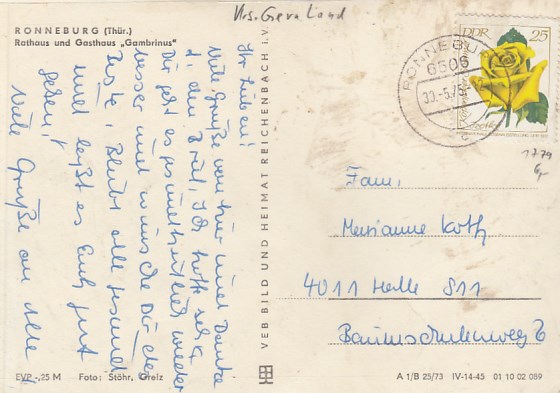 Krs. Gera Land
RONNEBURG (Thür.)
Rathaus und Gasthaus „Gambrinus"
DDR 25
RONNEBURG
6506
30.-5.75
1779
Ihr Lieben!
Viele Grüße von hier und Danke
f. den Brief. Ich hoffe sehr,
Dir geht es gesundheitlich wieder
besser und wünsche Dir das
Beste. Bleibt alle gesund
und laßt es Euch gut
gehen!
Viele Grüße an alle
Fam.
Marianne Koth
4011 Halle S11
Baumschulenweg 6
VEB BILD UND HEIMAT REICHENBACH i. V.
EVP -,25 M Foto: Stöhr, Greiz
A 1/B 25/73 IV-14-45 01 10 02 089